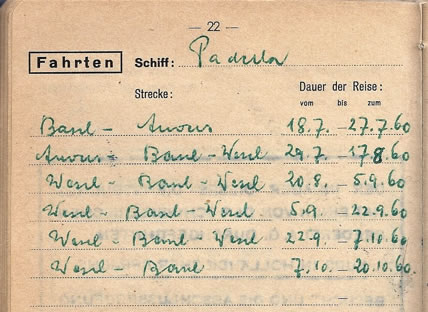 — 22 —
Fahrten Schiff: Padella
Strecke: Dauer der Reise:
vom bis zum
Basel - Anvers 18.7. - 27.7.60
Anvers - Basel - Wesel 29.7. - 17.8.60
Wesel - Basel - Wesel 20.8. - 5.9.60
Wesel - Basel - Wesel 5.9. - 22.9.60
Wesel - Basel - Wesel 22.9. - 7.10.60
Wesel - Basel 7.10. - 20.10.60.